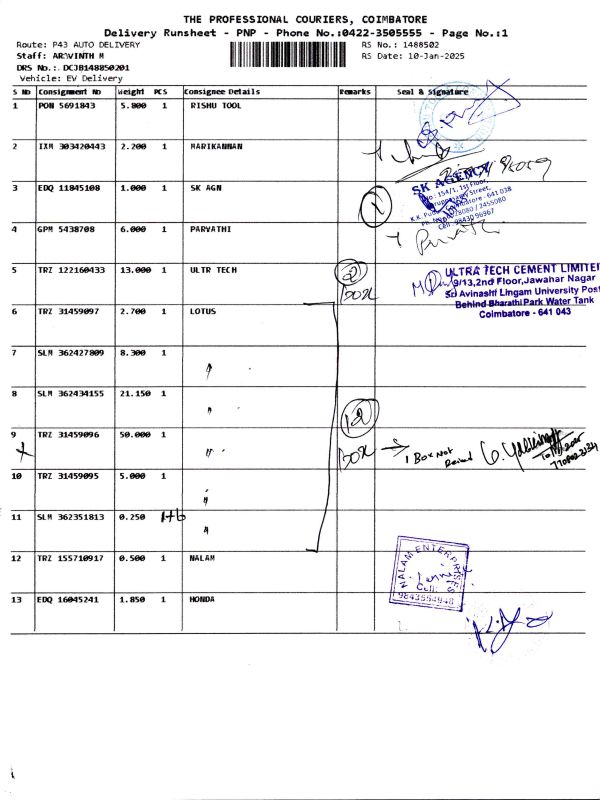 THE PROFESSIONAL COURIERS, COIMBATORE
Delivery Runsheet - PNP - Phone No.:0422-3505555 - Page No.:1
Route: P43 AUTO DELIVERY RS No.: 1488502
Staff: ARVINTH M RS Date: 10-Jan-2025
DRS No.: DCJB148850201
Vehicle: EV Delivery
S No Consignment No Weight PCS Consignee Details Remarks Seal & Signature
1 PON 5691843 5.800 1 RISHU TOOL
2 IXM 303420443 2.200 1 MARIKANNAN
3 EDQ 11845108 1.000 1 SK AGN
SK AGENCY
4 GPM 5438708 6.000 1 PARVATHI
Parvathi
5 TRZ 122160433 13.000 1 ULTR TECH
ULTRA TECH CEMENT LIMITE
9/13,2nd Floor,Jawahar Nagar
Sri Avinashi Lingam University Post
Behind Bharathi Park Water Tank
Coimbatore - 641 043
6 TRZ 31459097 2.700 1 LOTUS
7 SLM 362427809 8.300 1 "
8 SLM 362434155 21.150 1 "
9 TRZ 31459096 50.000 1 "
1 Box Not
10 TRZ 31459095 5.000 1 "
11 SLM 362351813 0.250 1+6 "
12 TRZ 155710917 0.500 1 NALAM
NALAM ENTERPRISES
Cell:
9843554948
13 EDQ 16045241 1.850 1 HONDA